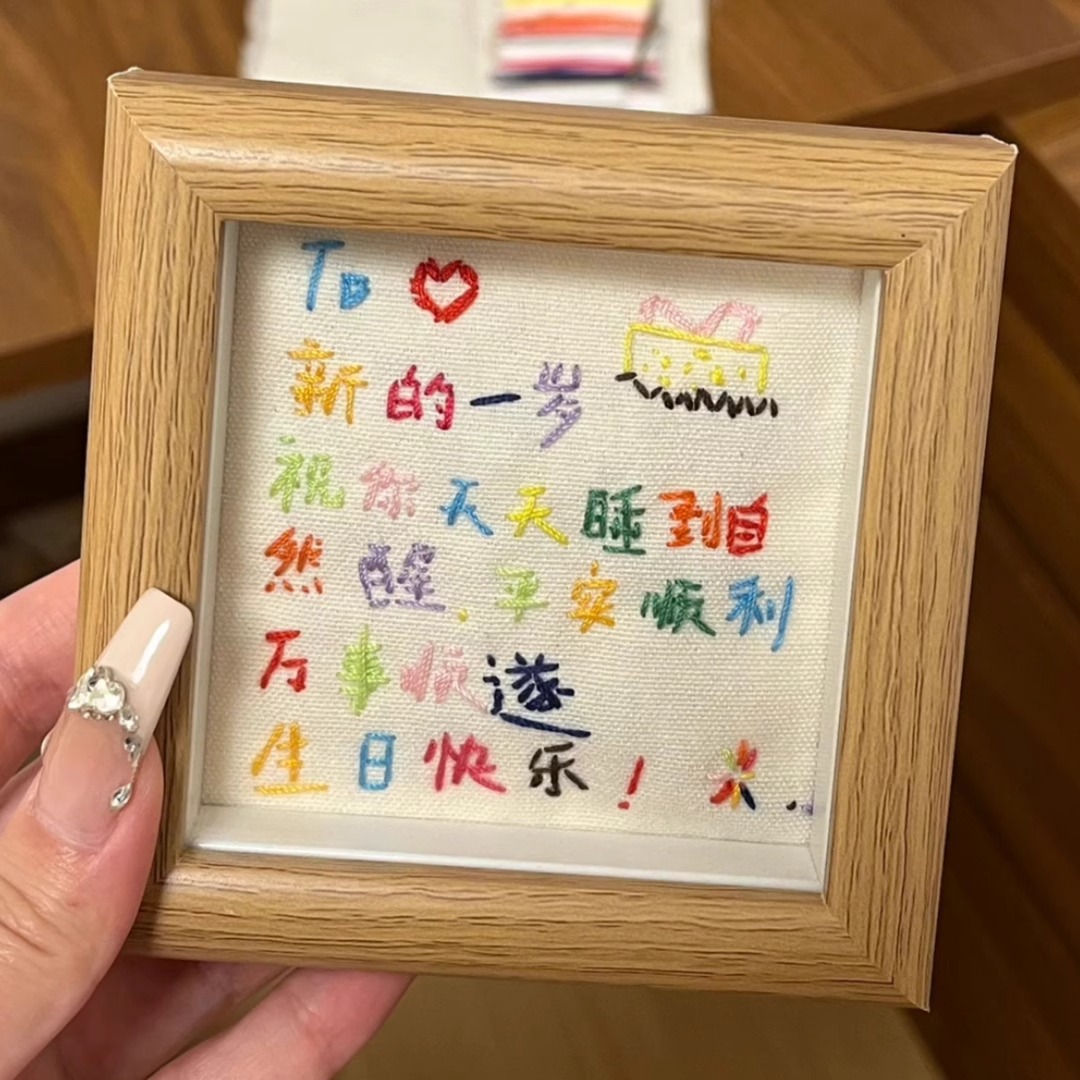 To
新的一岁
祝你天天睡到自
然醒.平安顺利
万事顺遂
生日快乐!